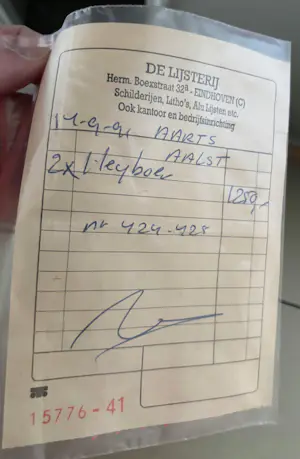 DE LIJSTERIJ
Herm. Boexstraat 32ª - EINDHOVEN (C)
Schilderijen, Litho's, Alu Lijsten etc.
Ook kantoor en bedrijfsinrichting
14-9-91 AARTS
AALST
2x Heyboer
1250,-
nr 424-425
15776-41